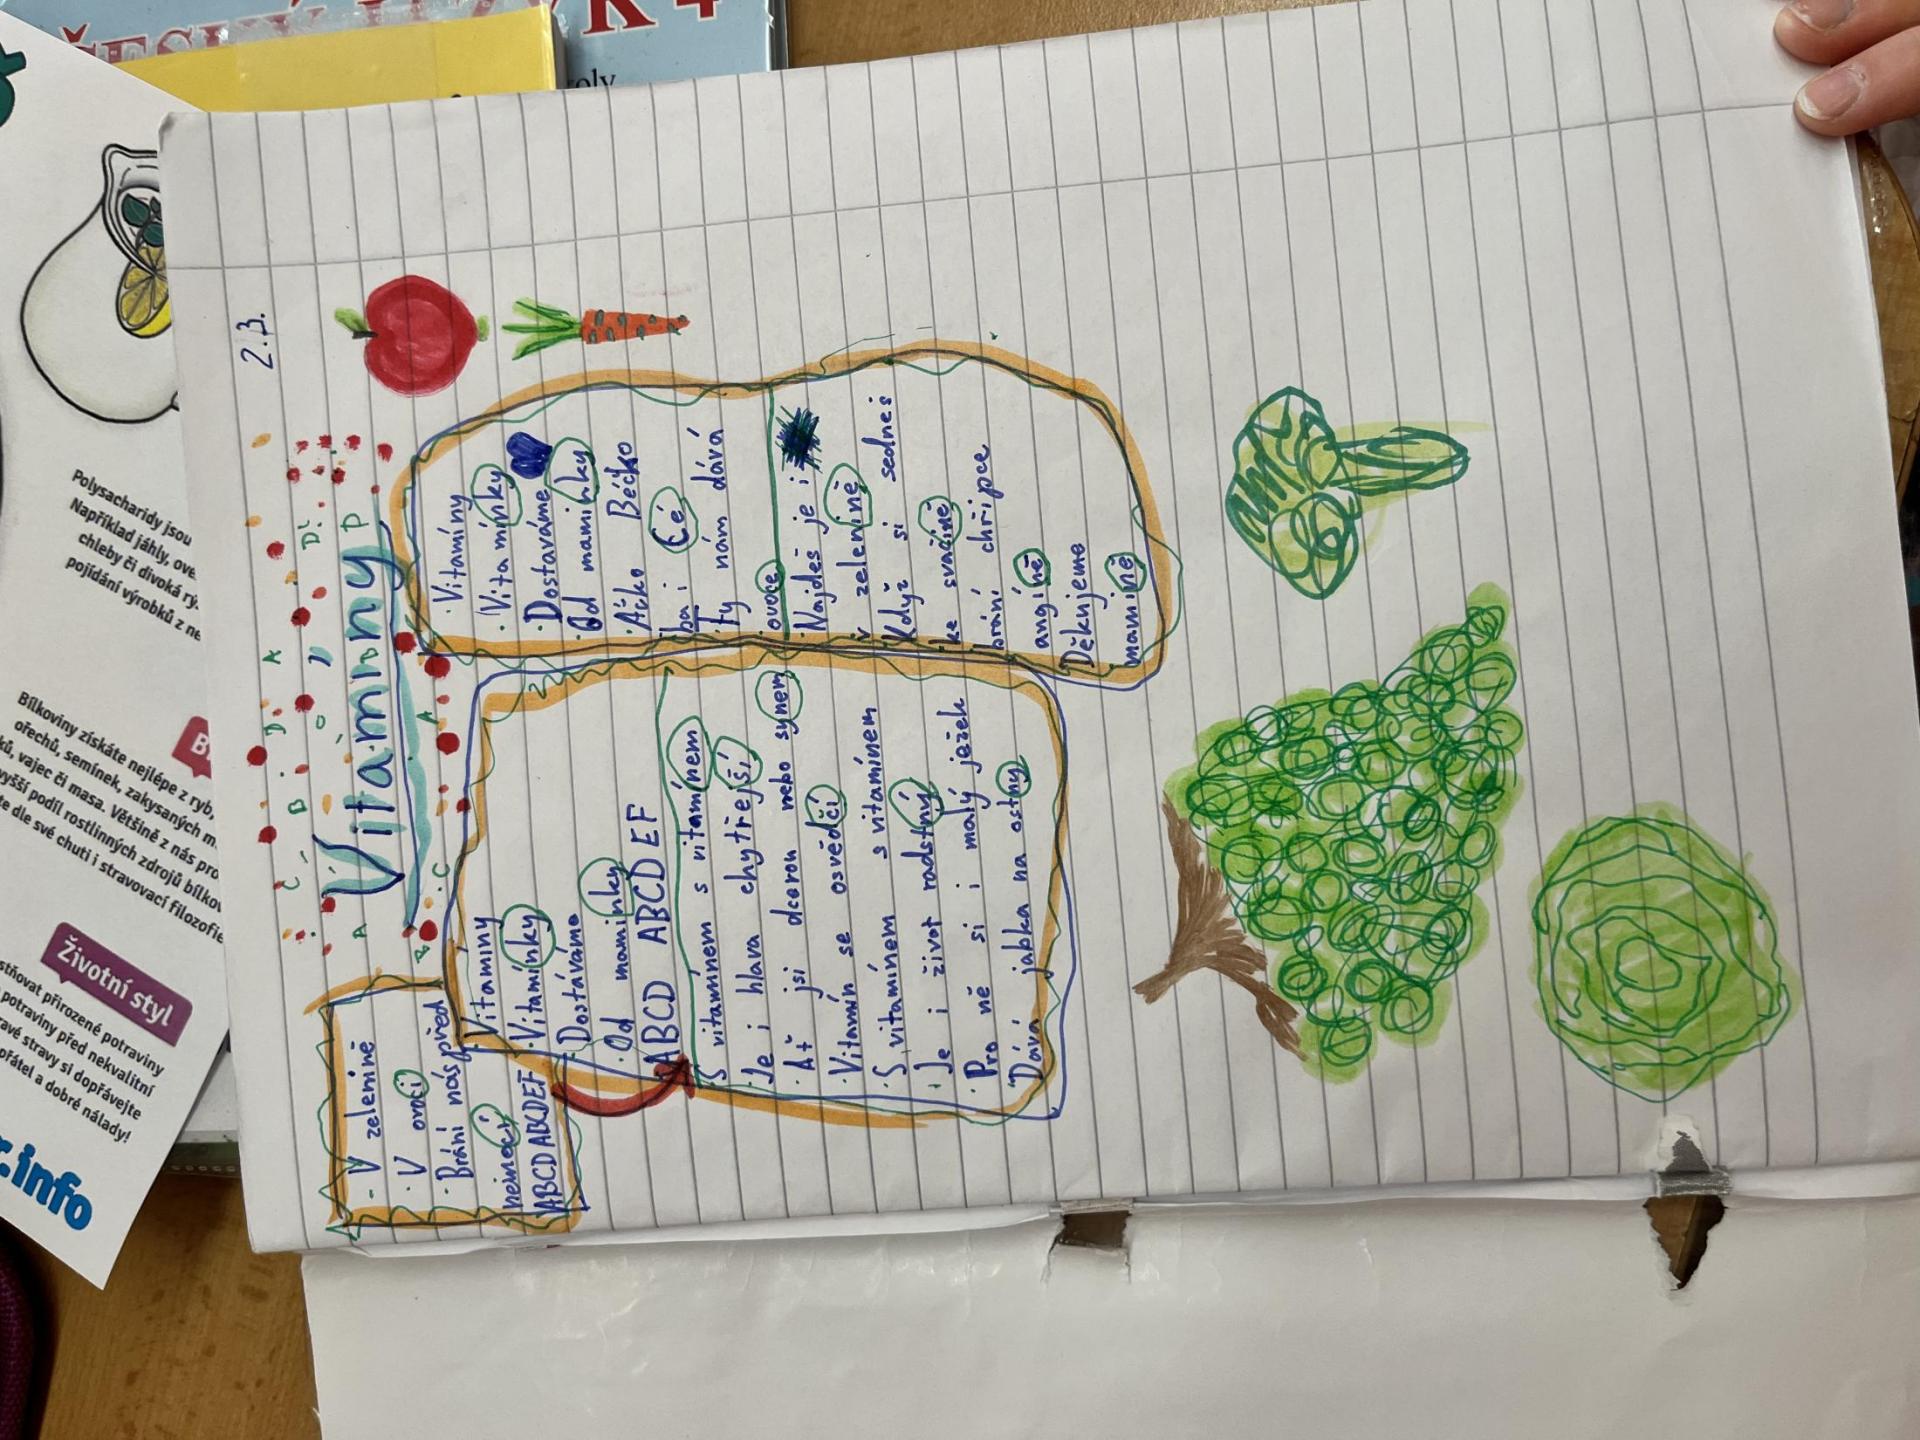 ČESKÝ JAZYK 4
2.3.
Vitamíny
· V zelenině
· V ovoci
· Brání nás před
nemocí
ABCD ABCDEF
· Vitamíny
· Vitamínky
· Dostáváme
· Od maminky
ABCD ABCDEF
S vitamínem s vitamínem
· Je i hlava chytřejší
· Ať jsi dcerou nebo synem
· Vitamín se osvědčí
· S vitamínem s vitamínem
· Je i život radstný
· Pro ně si i malý ježek
· Dává jabka na ostny
· Vitamíny
· Vitamínky
· Dostáváme
· Od maminky
· Áčko Béčko
ba i Cé
· Ty nám dává
ovoce
· Najdeš je i
v zelenině
· Když si sedneš
ke svačině
brání chřipce
angíně
Děkujeme
mamině
A B C D A
D
P
A
B
C
A
Polysacharidy jsou
Například jáhly,
chleby či divoká
pojídání výrobků z
Bílkoviny získáte nejlépe z ryb,
ořechů, semínek, zakysaných
vajec či masa. Většině z nás
vyšší podíl rostlinných zdrojů
dle své chuti i stravovací
Životní styl
přirozené potraviny
potraviny před
stravy si dopřávejte
přátel a dobré nálady!
.info